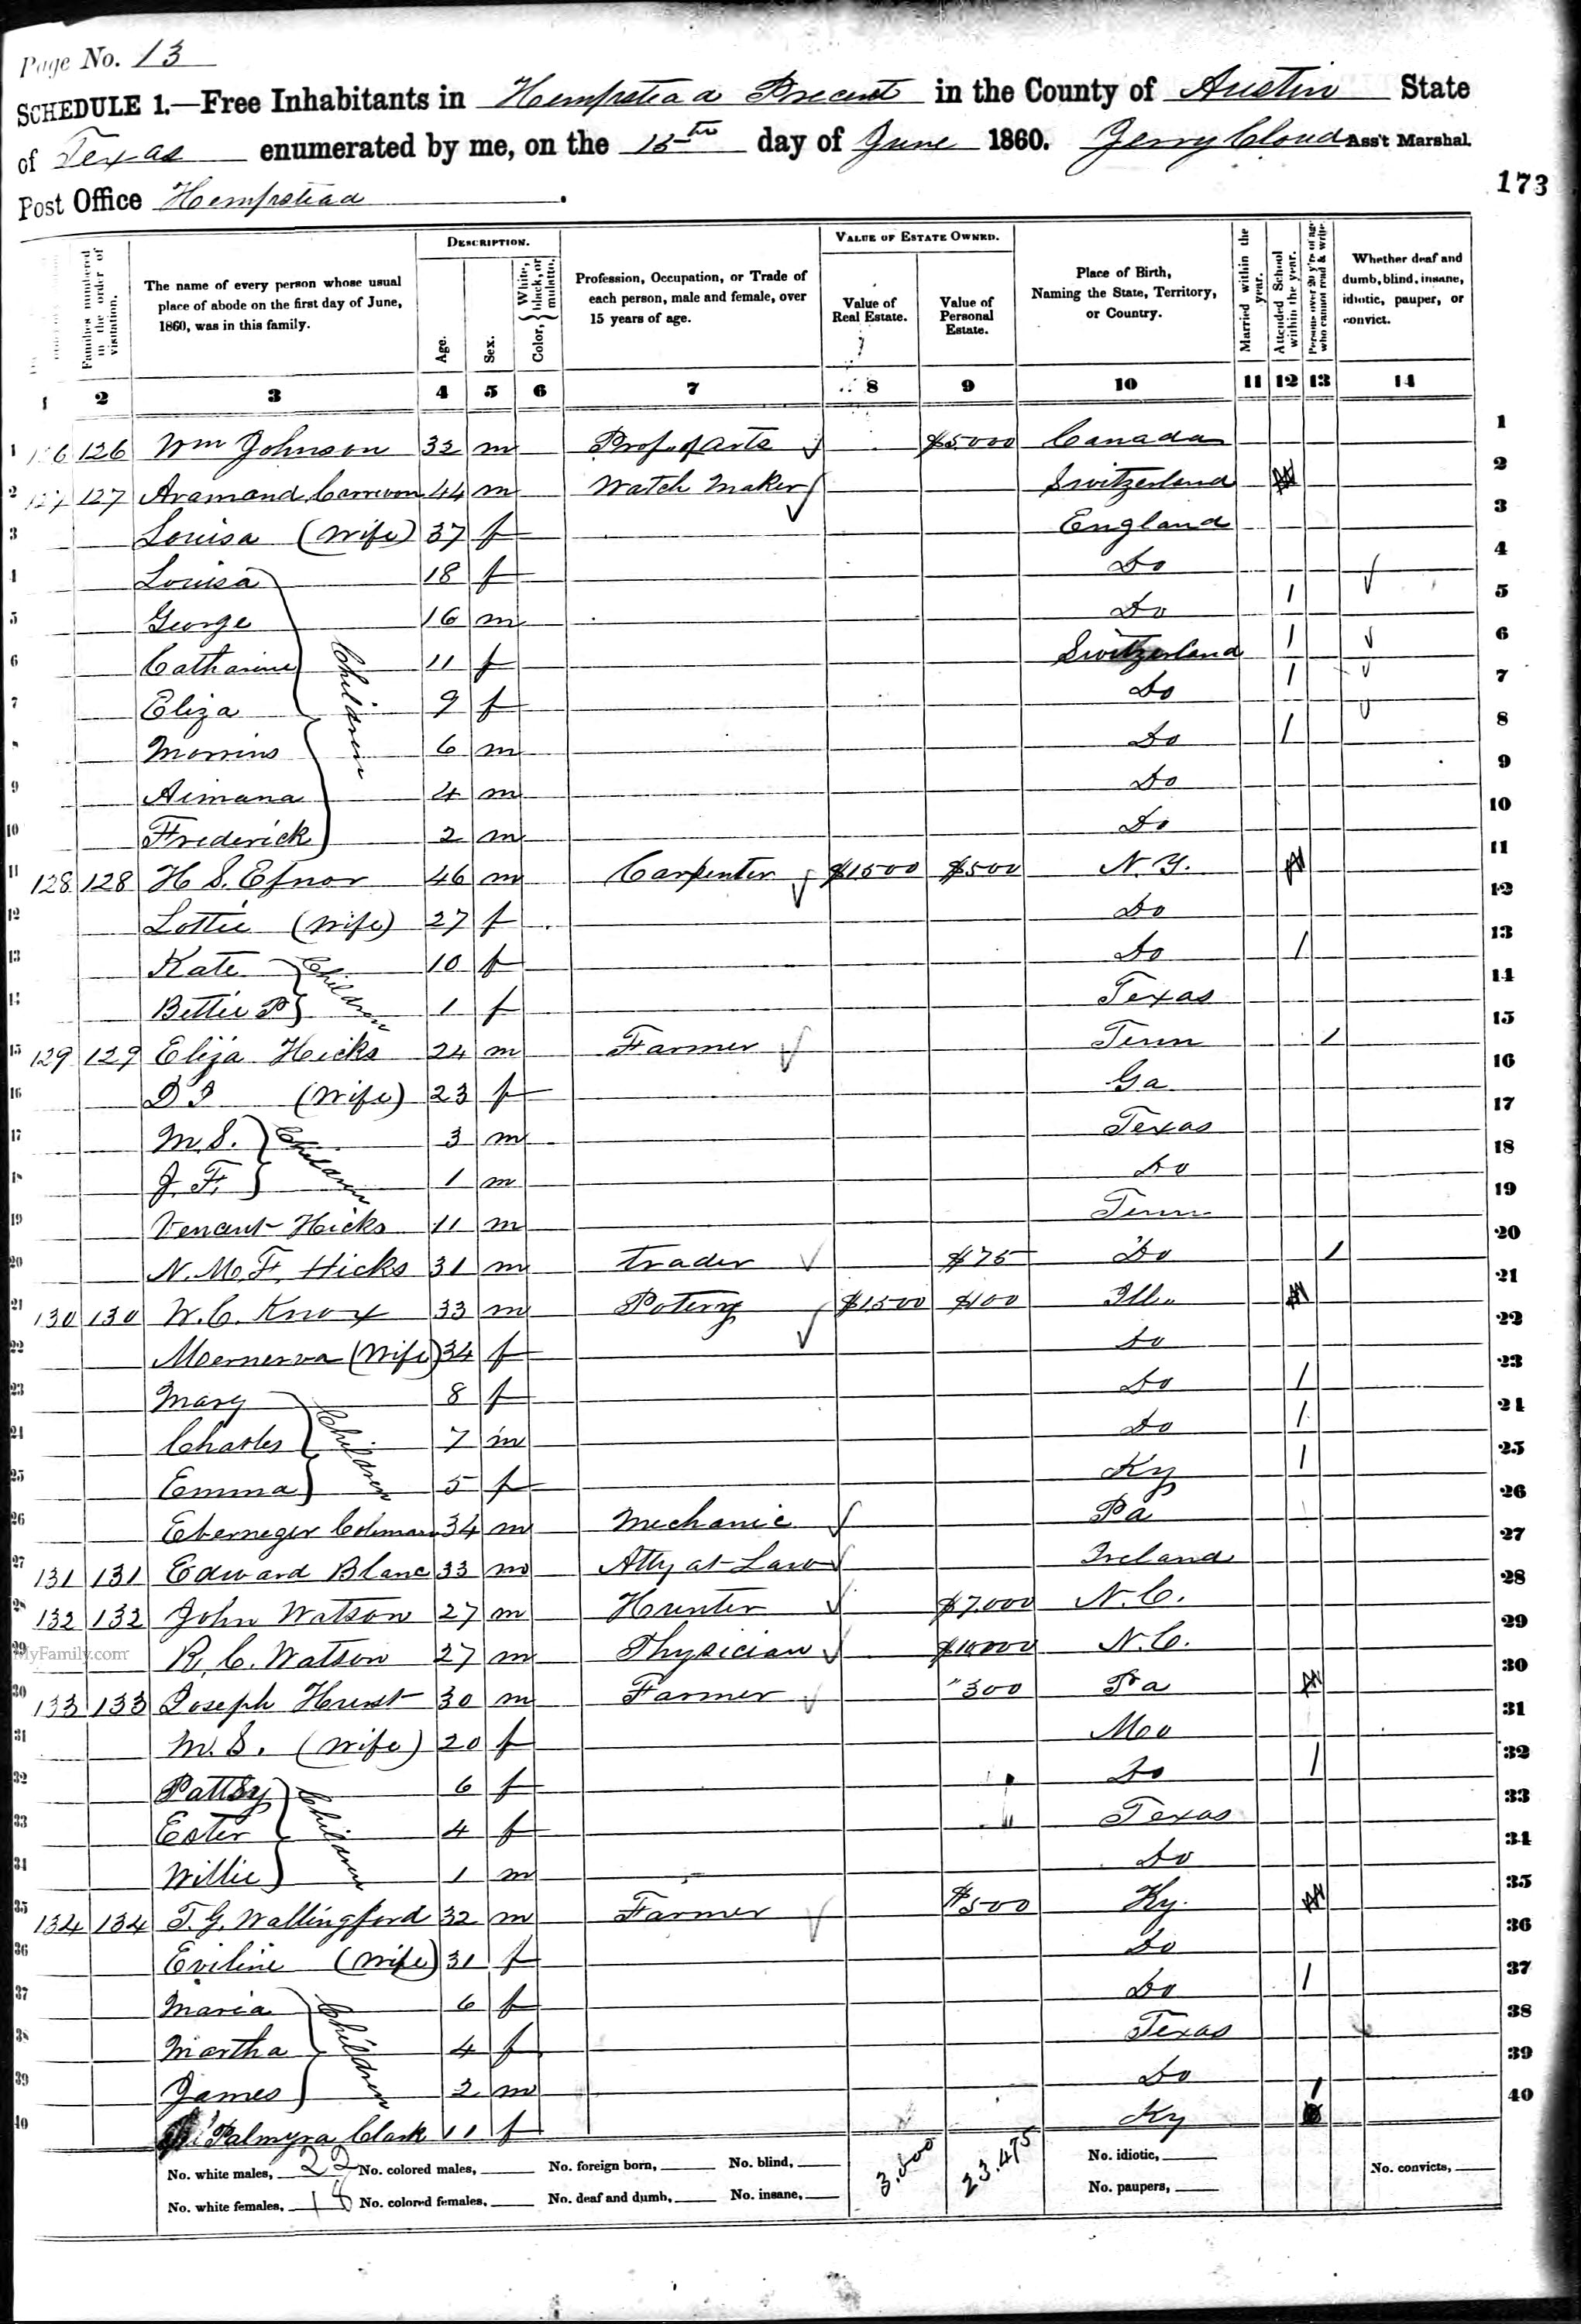 Page No. 13
SCHEDULE 1.—Free Inhabitants in Hempstead Precent in the County of Austin State
of Texas enumerated by me, on the 15th day of June 1860. Jerry Cloud Ass't Marshal.
Post Office Hempstead.
173
Families numbered in the order of visitation.
The name of every person whose usual place of abode on the first day of June, 1860, was in this family.
DESCRIPTION.
Age.
Sex.
Color, White, black, or mulatto.
Profession, Occupation, or Trade of each person, male and female, over 15 years of age.
VALUE OF ESTATE OWNED.
Value of Real Estate.
Value of Personal Estate.
Place of Birth, Naming the State, Territory, or Country.
Married within the year.
Attended School within the year.
Persons over 20 y'rs of age who cannot read & write.
Whether deaf and dumb, blind, insane, idiotic, pauper, or convict.
1 2 3 4 5 6 7 8 9 10 11 12 13 14
1 126 126 Wm Johnson 32 m Prof. of Arts $5000 Canada 1
2 127 127 Aramand 44 m Watch Maker Switzerland 2
3 Louisa (Wife) 37 f England 3
4 Louisa 18 f Do 4
5 George 16 m Do 1 5
6 Catharine 11 f Switzerland 1 6
7 Eliza 9 f Do 1 7
Children
8 Morrins 6 m Do 1 8
9 Aimana 4 m Do 9
10 Frederick 2 m Do 10
11 128 128 H S. Efnor 46 m Carpenter $1500 $500 N.Y. 11
12 Lottie (Wife) 27 f Do 12
13 Kate 10 f Do 1 13
Children
14 Bettie P 1 f Texas 14
15 129 129 Eliza Hicks 24 m Farmer Tenn 1 15
16 D I (Wife) 23 f Ga 16
17 M. S. 3 m Texas 17
Children
18 J. F. 1 m Do 18
19 Vencent Hicks 11 m Tenn 19
20 N. M. F. Hicks 31 m trader $75 Do 1 20
21 130 130 W. C. Knox 33 m Potery $1500 $100 Ill. 21
22 Mernerva (Wife) 34 f Do 22
23 Mary 8 f Do 1 23
24 Charles 7 m Do 1 24
Children
25 Emma 5 f Ky 1 25
26 Eberneger Colman 34 m Mechanic Pa 26
27 131 131 Edward Blanc 33 m Atty at Law Ireland 27
28 132 132 John Watson 27 m Hunter $7.000 N.C. 28
29 R. C. Watson 27 m Physician $10000 N.C. 29
MyFamily.com
30 133 133 Joseph Hurst 30 m Farmer "300 Pa 30
31 M. S. (Wife) 20 f Mo 31
32 Pattsy 6 f Do 1 32
33 Ester 4 f Texas 33
Children
34 Willie 1 m Do 34
35 134 134 T. G. Wallingford 32 m Farmer $500 Ky. 35
36 Eviline (Wife) 31 f Do 36
37 Maria 6 f Do 1 37
38 Martha 4 f Texas 38
Children
39 James 2 m Do 39
40 Palmyra Clark 11 f Ky 1 40
No. white males, 22 No. colored males, No. foreign born, No. blind, 3.000 23.475 No. idiotic, No. convicts,
No. white females, 18 No. colored females, No. deaf and dumb, No. insane, No. paupers,